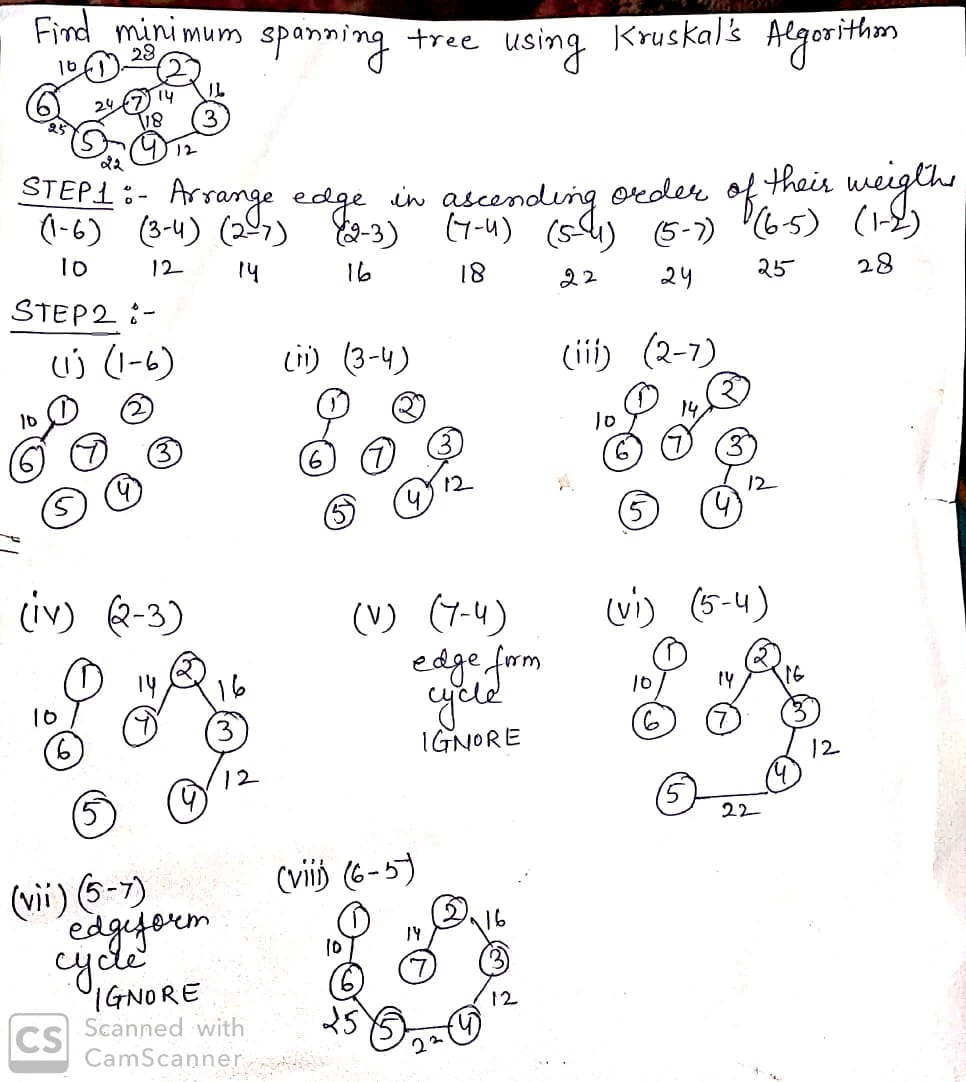 Find minimum spanning tree using Kruskal's Algorithm
10 1 28 2
6 24 7 14 16
25 18 3
5 4 12
22
STEP1 :- Arrange edge in ascending order of their weigths
(1-6) (3-4) (2-7) (2-3) (7-4) (5-4) (5-7) (6-5) (1-2)
10 12 14 16 18 22 24 25 28
STEP2 :-
(i) (1-6) (ii) (3-4) (iii) (2-7)
10 1 2 1 2 10 1 14 2
6 7 3 6 7 3 6 7 3
5 4 5 4 12 5 4 12
(iv) (2-3) (V) (7-4) (vi) (5-4)
edge form
cycle
IGNORE
1 14 2 16 1 2
10 7 3 10 14 16
6 6 7 3
5 4 12 5 22 4 12
(vii) (5-7) (viii) (6-5)
edge form
cycle
IGNORE
1 14 2 16
10 7 3
6 12
25 5 22 4
CS Scanned with
CamScanner